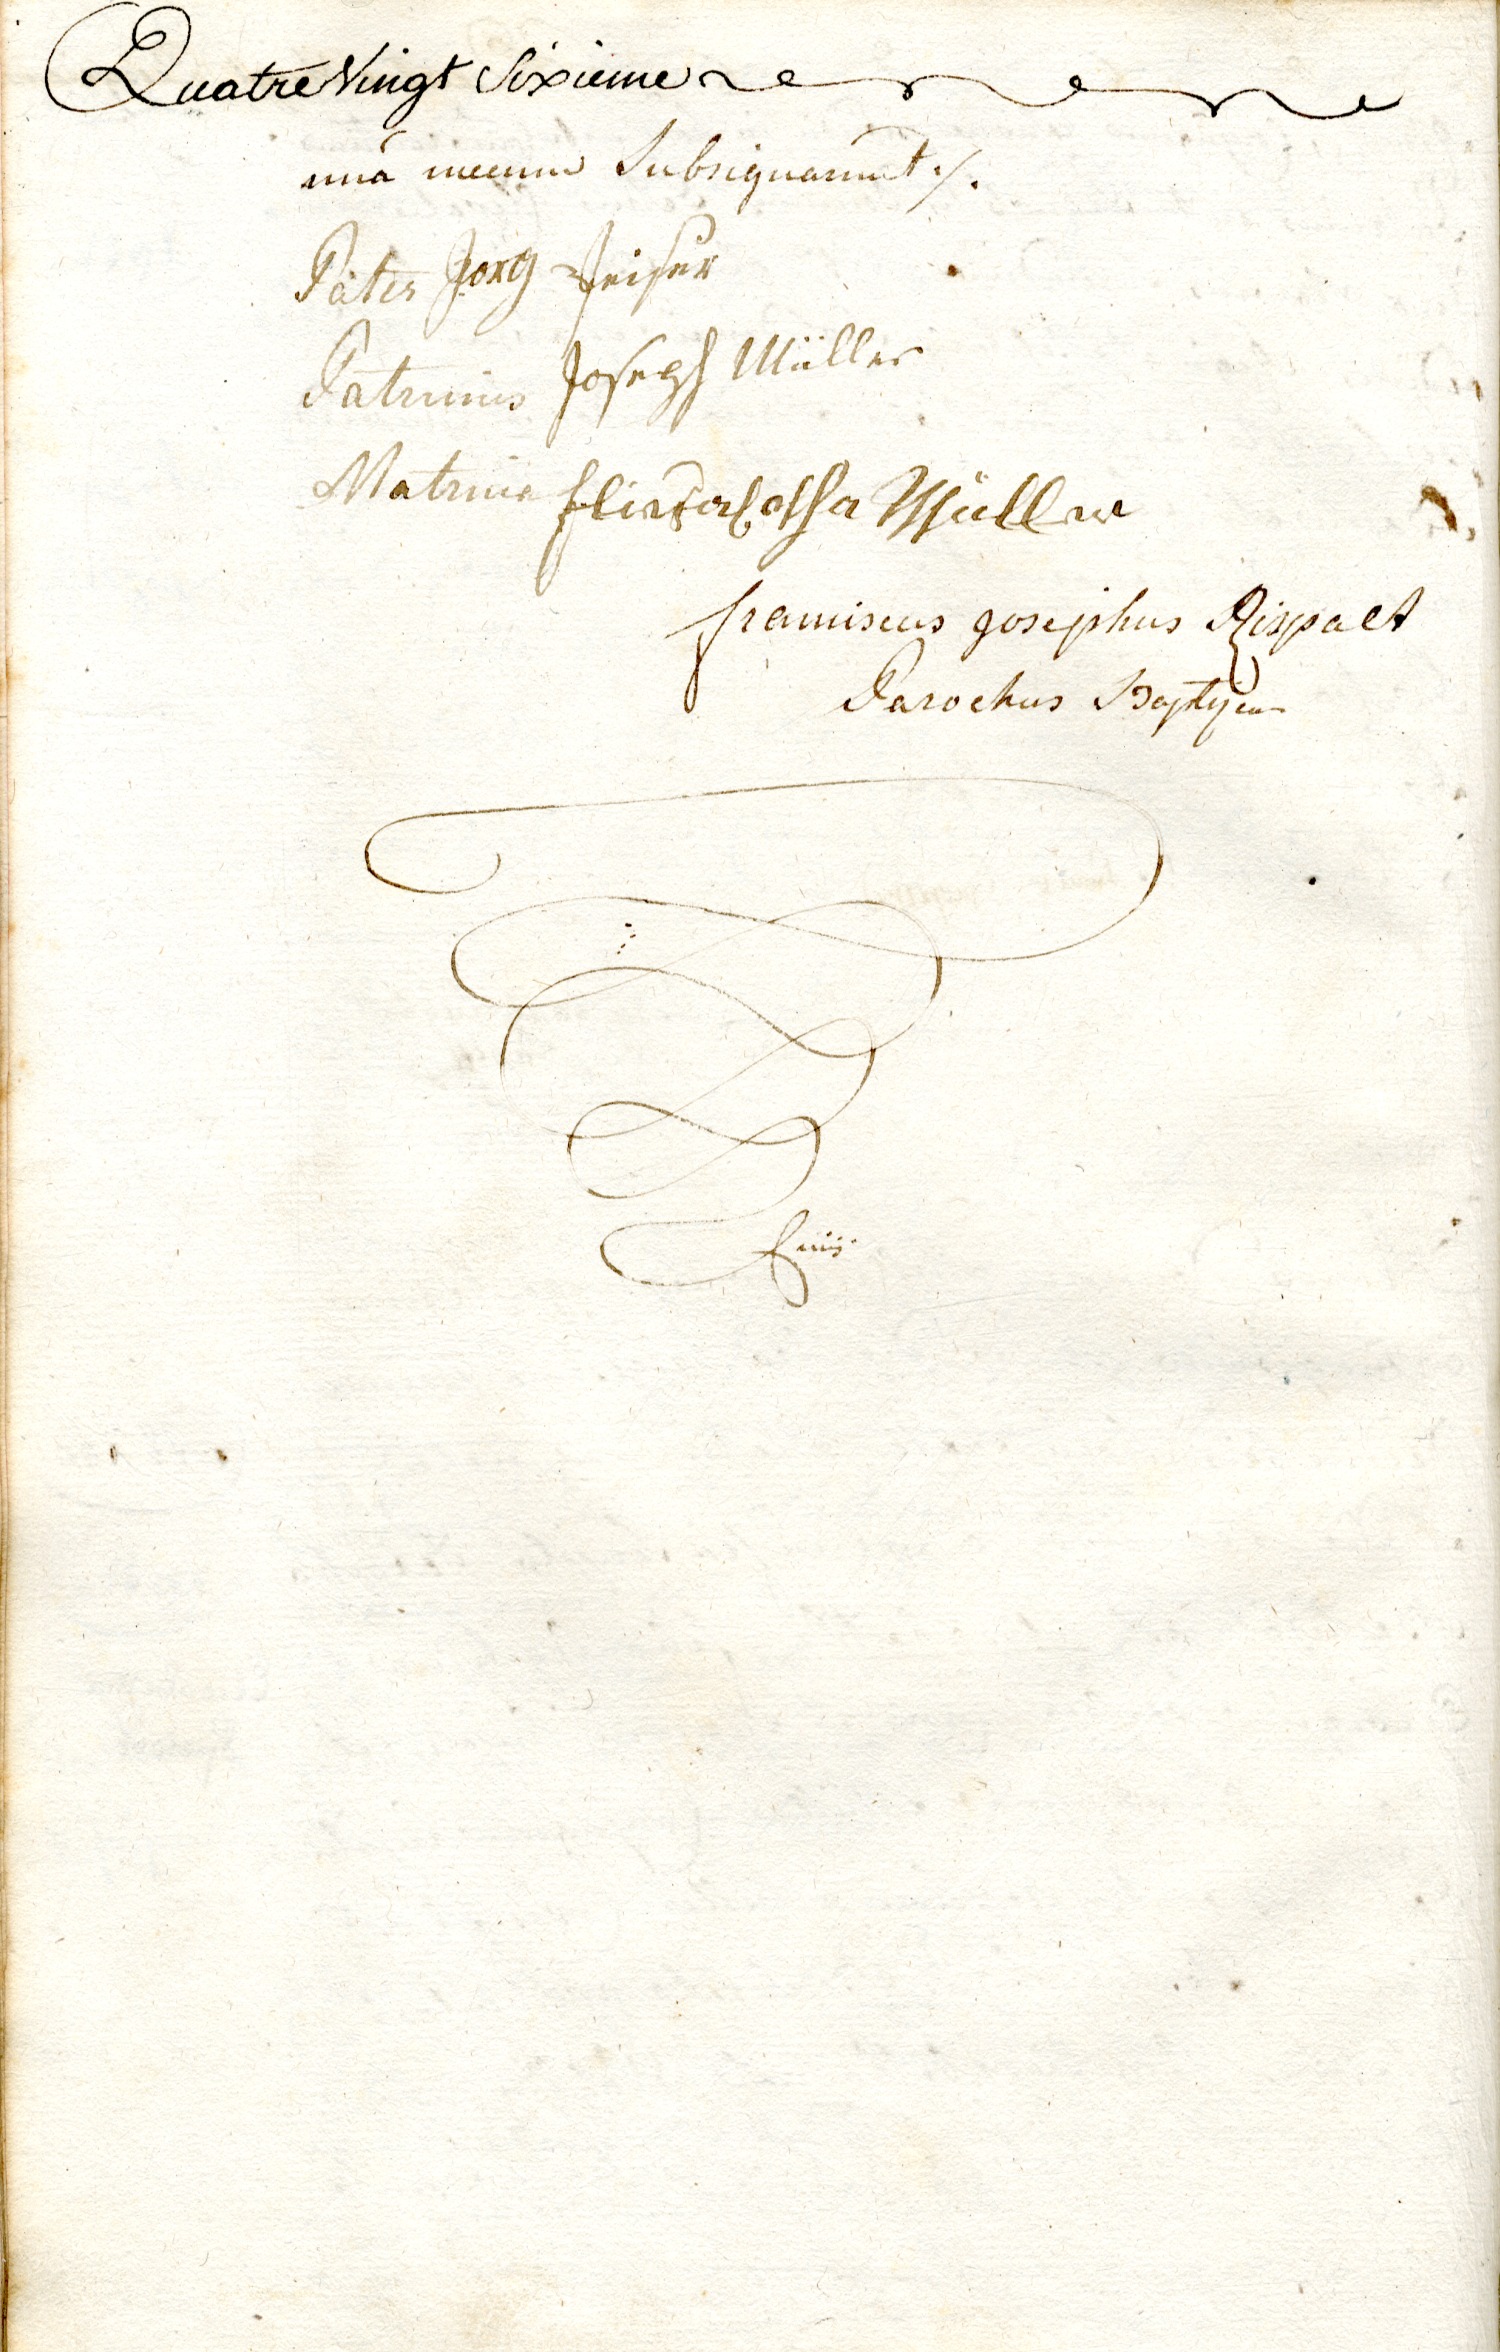 Quatre Vingt Sixieme
unà mecum Subsignarunt ./.
Pater Jorg
Patrinus Joseph Müller
Matrina Elisabetha Müller
franciscus josephus Rispalt
Parochus
finis